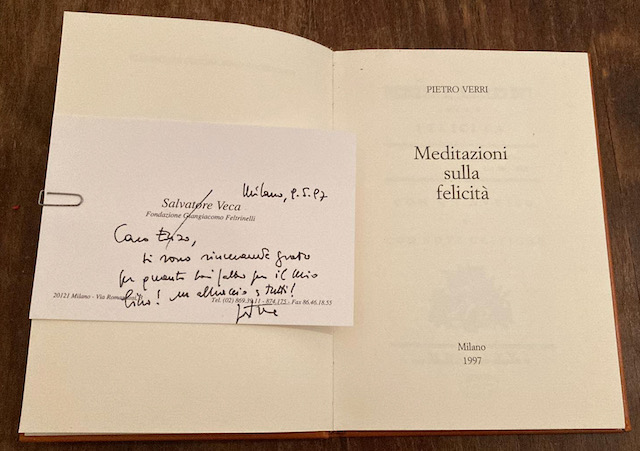 Milano, 9.5.97
Salvatore Veca
Fondazione Giangiacomo Feltrinelli
Caro Enzo,
ti sono veramente grato
per quanto hai fatto per il mio
libro! un abbraccio a tutti!
20121 Milano - Via Romagnosi, 3
Tel. (02) 869.39.11 - 874.175 - Fax 86.46.18.55
PIETRO VERRI
Meditazioni
sulla
felicità
Milano
1997